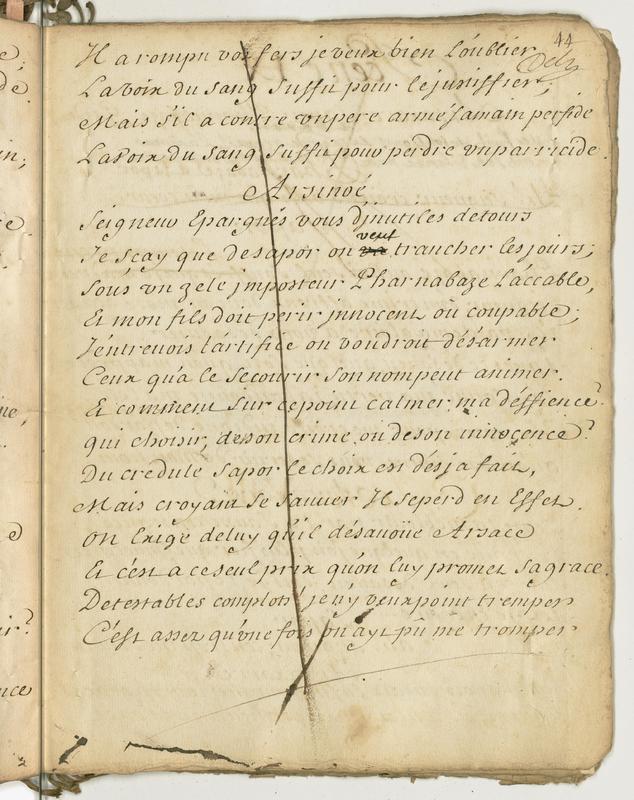 44
Il a rompu vos fers je veux bien L'oublier
La voix du sang suffit pour le justiffier,
Mais s'il a contre vn pere armé sa main perfide
La voix du sang suffit pour perdre vn parricide.
Arsinoé
Seigneur Epargnés vous d'jnutiles detours
Je sçay que de sapor on veut trancher les jours;
sous vn zele jmposteur Pharnabaze L'accable,
Et mon fils doit perir jnnocent ou coupable;
J'entrevois l'artifice on voudroit désarmer
Ceux qu'a le secourir son nom peut animer.
Et comment sur ce point calmer ma déffience?
qui choisir, de son crime ou de son innocence?
Du credule sapor le choix est désja fait,
Mais croyant se sauver Il se perd en Effet.
On Exige de luy qu'il désavoüe Arsace
Et c'est a ce seul prix qu'on luy promet sa grace.
Detestables complots! je n'y veux point tremper
C'est assez qu'vne fois on ayt pû me tromper